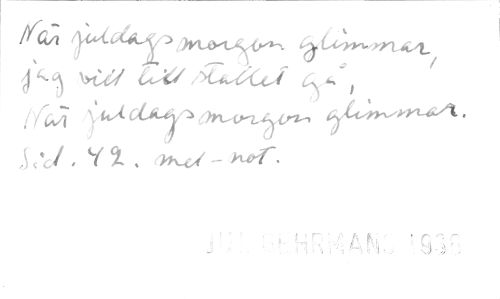 När juldagsmorgon glimmar,
jag vill till stallet gå,
När juldagsmorgon glimmar.
Sid. 42. mel-not.
JUL GEHRMANS 1936